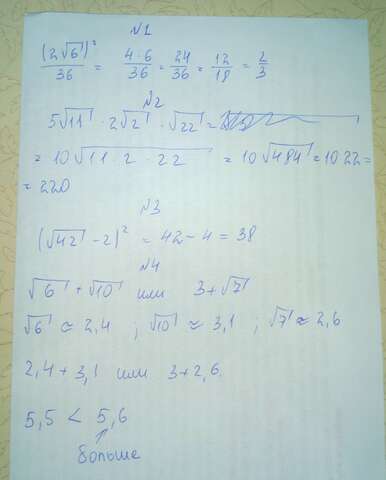 №1
(2√6)²/36 = 4·6/36 = 24/36 = 12/18 = 2/3
№2
5√11 · 2√2 · √22 =
= 10√11·2·22 = 10√484 = 10 22 =
= 220
№3
(√42 - 2)² = 42 - 4 = 38
№4
√6 + √10 или 3 + √7
√6 ≈ 2,4 ; √10 ≈ 3,1 ; √7 ≈ 2,6
2,4 + 3,1 или 3 + 2,6
5,5 < 5,6
больше